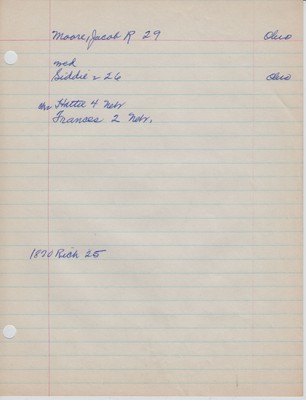 Moore, Jacob R 29 Ohio
Siddie 26 Ohio
Hattie 4 Nebr
Frances 2 Nebr.
1870 Rich 25